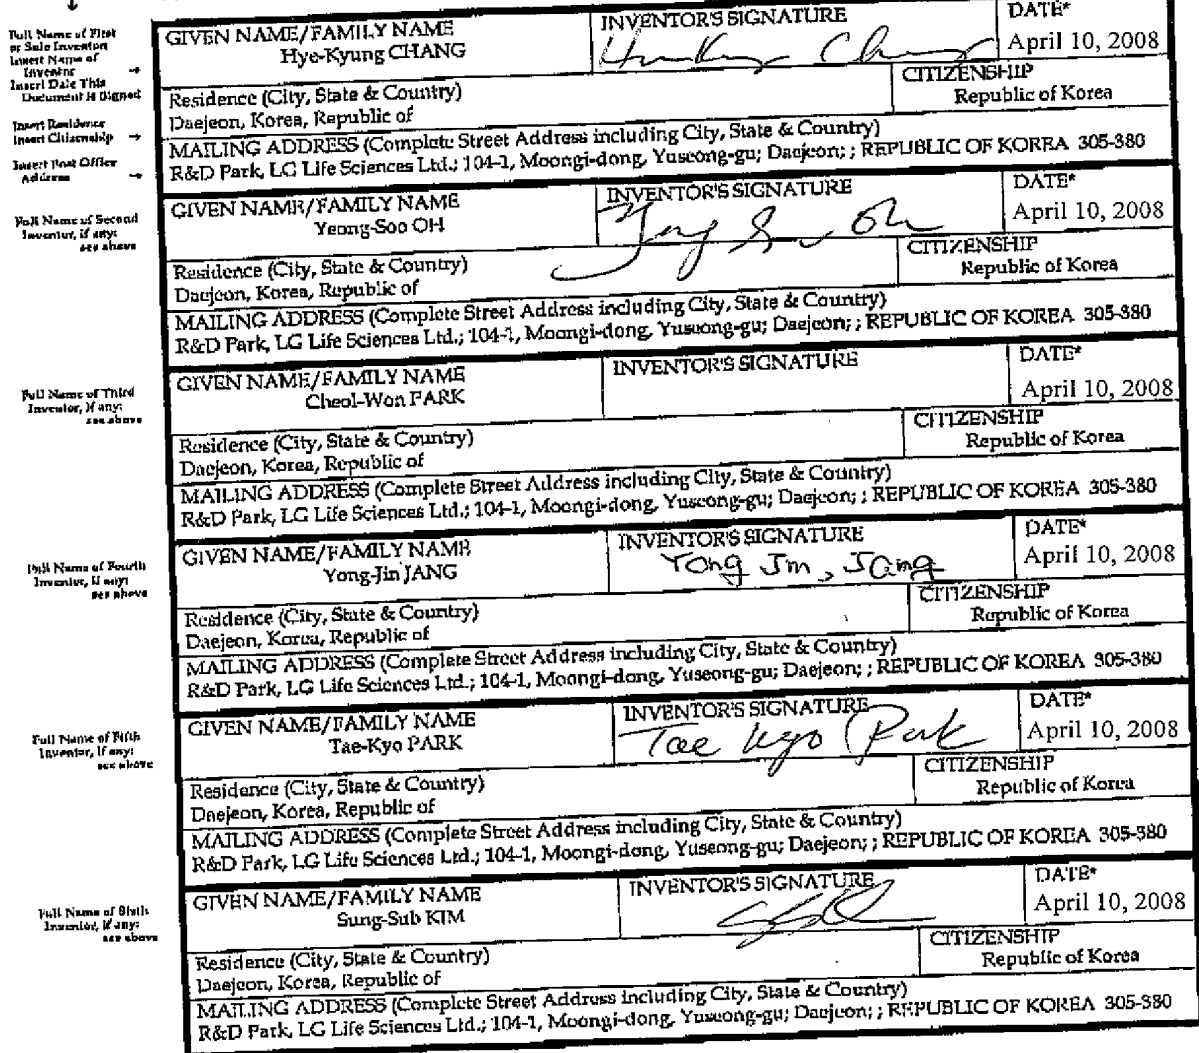 Full Name of First
or Sole Inventor:
Insert Name of
Inventor →
Insert Date This
Document is Signed
Insert Residence
Insert Citizenship →
Insert Post Office
Address →
GIVEN NAME/FAMILY NAME
Hye-Kyung CHANG
INVENTOR'S SIGNATURE
DATE*
April 10, 2008
Residence (City, State & Country)
Daejeon, Korea, Republic of
CITIZENSHIP
Republic of Korea
MAILING ADDRESS (Complete Street Address including City, State & Country)
R&D Park, LG Life Sciences Ltd.; 104-1, Moongi-dong, Yuseong-gu; Daejeon; ; REPUBLIC OF KOREA 305-380
Full Name of Second
Inventor, if any:
see above
GIVEN NAME/FAMILY NAME
Yeong-Soo OH
INVENTOR'S SIGNATURE
Yeong Soo Oh
DATE*
April 10, 2008
Residence (City, State & Country)
Daejeon, Korea, Republic of
CITIZENSHIP
Republic of Korea
MAILING ADDRESS (Complete Street Address including City, State & Country)
R&D Park, LG Life Sciences Ltd.; 104-1, Moongi-dong, Yuseong-gu; Daejeon; ; REPUBLIC OF KOREA 305-380
Full Name of Third
Inventor, if any:
see above
GIVEN NAME/FAMILY NAME
Cheol-Won PARK
INVENTOR'S SIGNATURE
DATE*
April 10, 2008
Residence (City, State & Country)
Daejeon, Korea, Republic of
CITIZENSHIP
Republic of Korea
MAILING ADDRESS (Complete Street Address including City, State & Country)
R&D Park, LG Life Sciences Ltd.; 104-1, Moongi-dong, Yuseong-gu; Daejeon; ; REPUBLIC OF KOREA 305-380
Full Name of Fourth
Inventor, if any:
see above
GIVEN NAME/FAMILY NAME
Yong-Jin JANG
INVENTOR'S SIGNATURE
Yong Jin, Jang
DATE*
April 10, 2008
Residence (City, State & Country)
Daejeon, Korea, Republic of
CITIZENSHIP
Republic of Korea
MAILING ADDRESS (Complete Street Address including City, State & Country)
R&D Park, LG Life Sciences Ltd.; 104-1, Moongi-dong, Yuseong-gu; Daejeon; ; REPUBLIC OF KOREA 305-380
Full Name of Fifth
Inventor, if any:
see above
GIVEN NAME/FAMILY NAME
Tae-Kyo PARK
INVENTOR'S SIGNATURE
Tae Kyo Park
DATE*
April 10, 2008
Residence (City, State & Country)
Daejeon, Korea, Republic of
CITIZENSHIP
Republic of Korea
MAILING ADDRESS (Complete Street Address including City, State & Country)
R&D Park, LG Life Sciences Ltd.; 104-1, Moongi-dong, Yuseong-gu; Daejeon; ; REPUBLIC OF KOREA 305-380
Full Name of Sixth
Inventor, if any:
see above
GIVEN NAME/FAMILY NAME
Sung-Sub KIM
INVENTOR'S SIGNATURE
DATE*
April 10, 2008
Residence (City, State & Country)
Daejeon, Korea, Republic of
CITIZENSHIP
Republic of Korea
MAILING ADDRESS (Complete Street Address including City, State & Country)
R&D Park, LG Life Sciences Ltd.; 104-1, Moongi-dong, Yuseong-gu; Daejeon; ; REPUBLIC OF KOREA 305-380